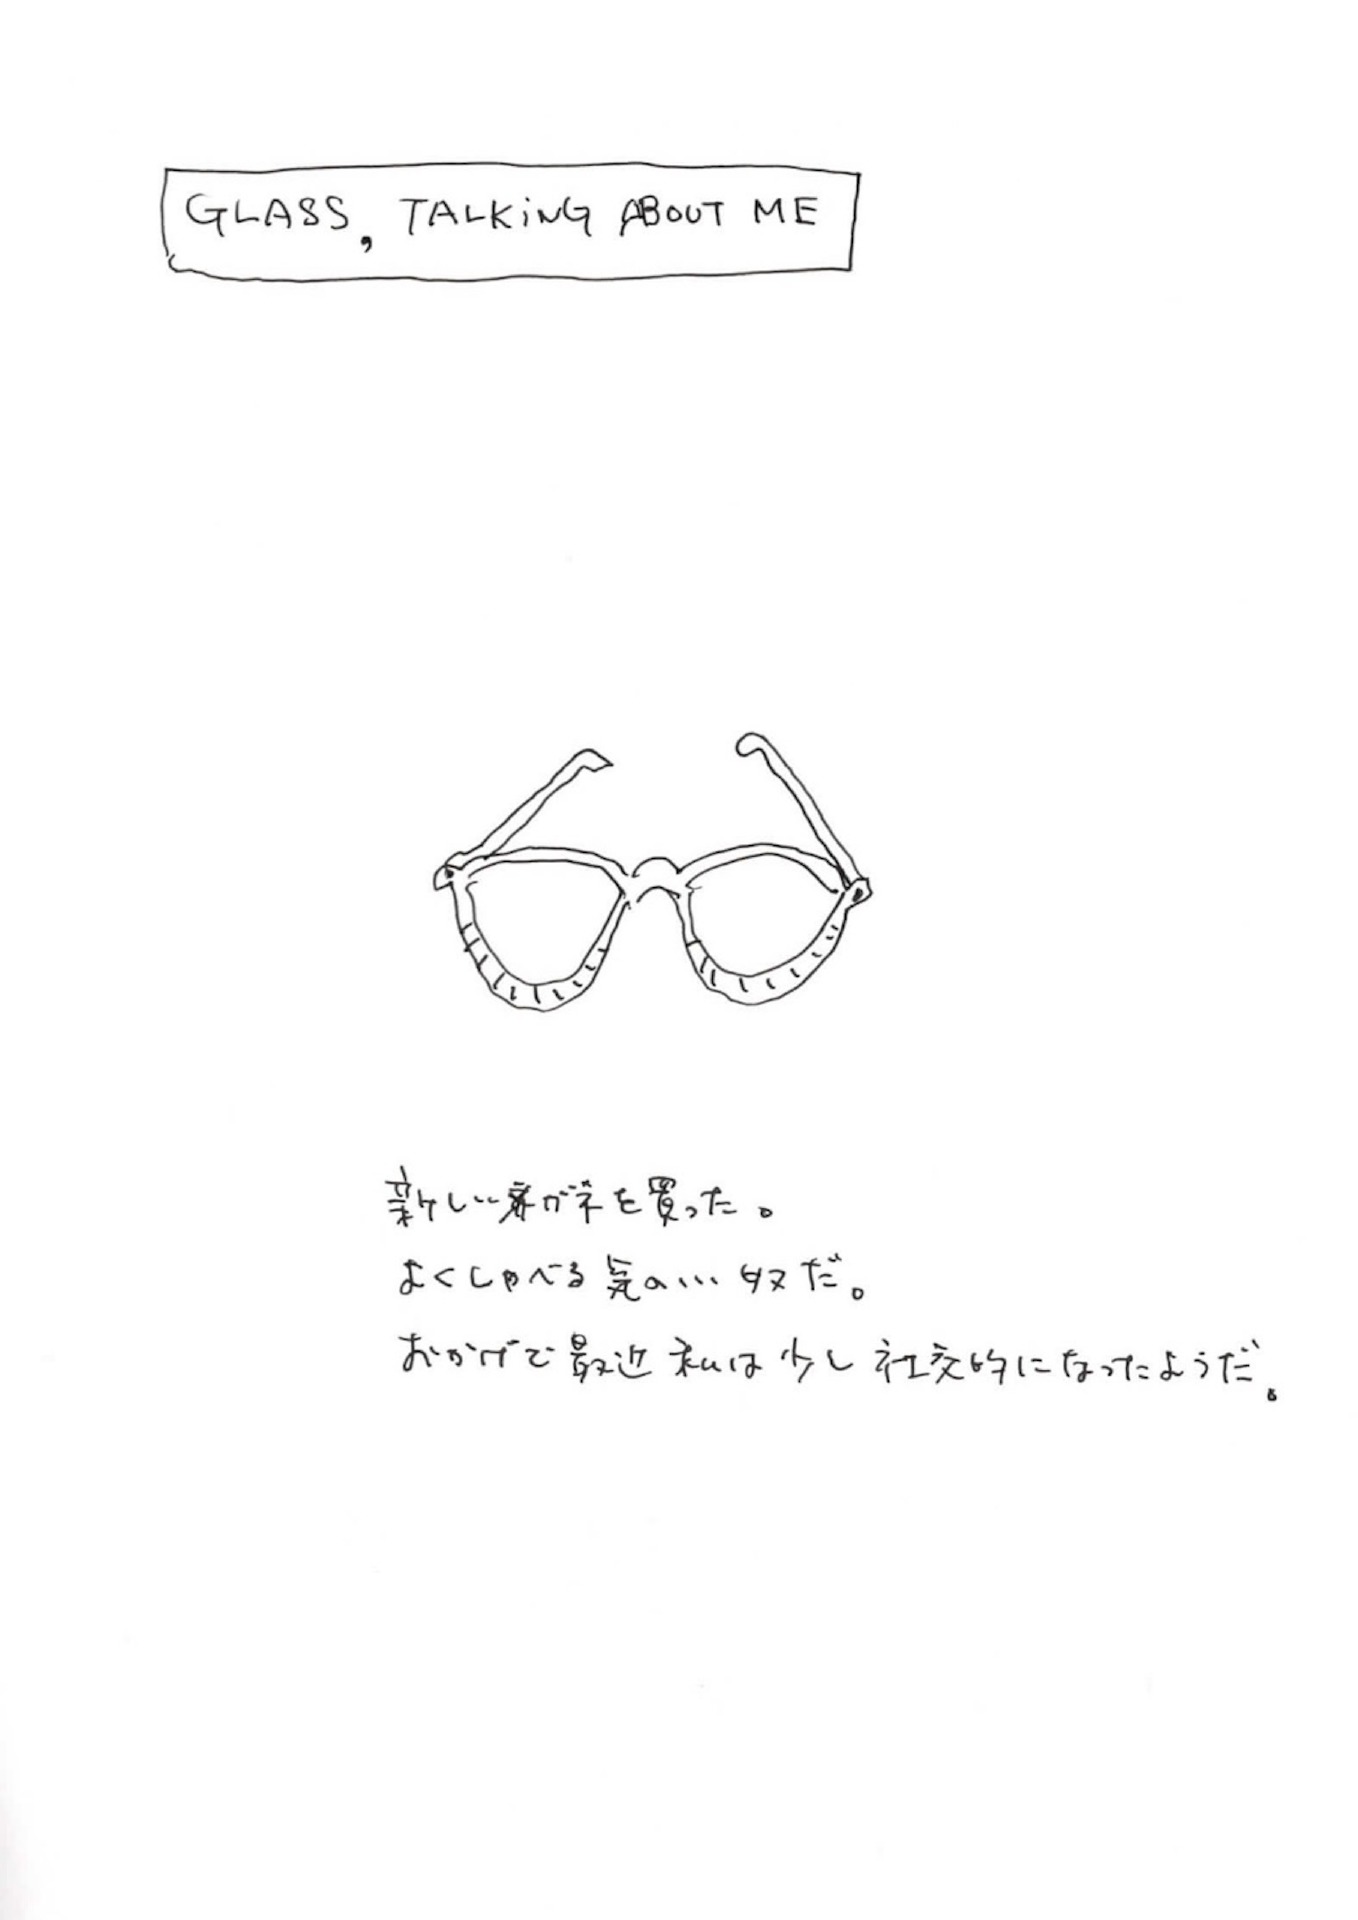 GLASS, TALKiNG ABOUT ME
新しいガネを買った。
よくしゃべる気のいい奴だ。
おかげで最近私は少し社交的になったようだ。